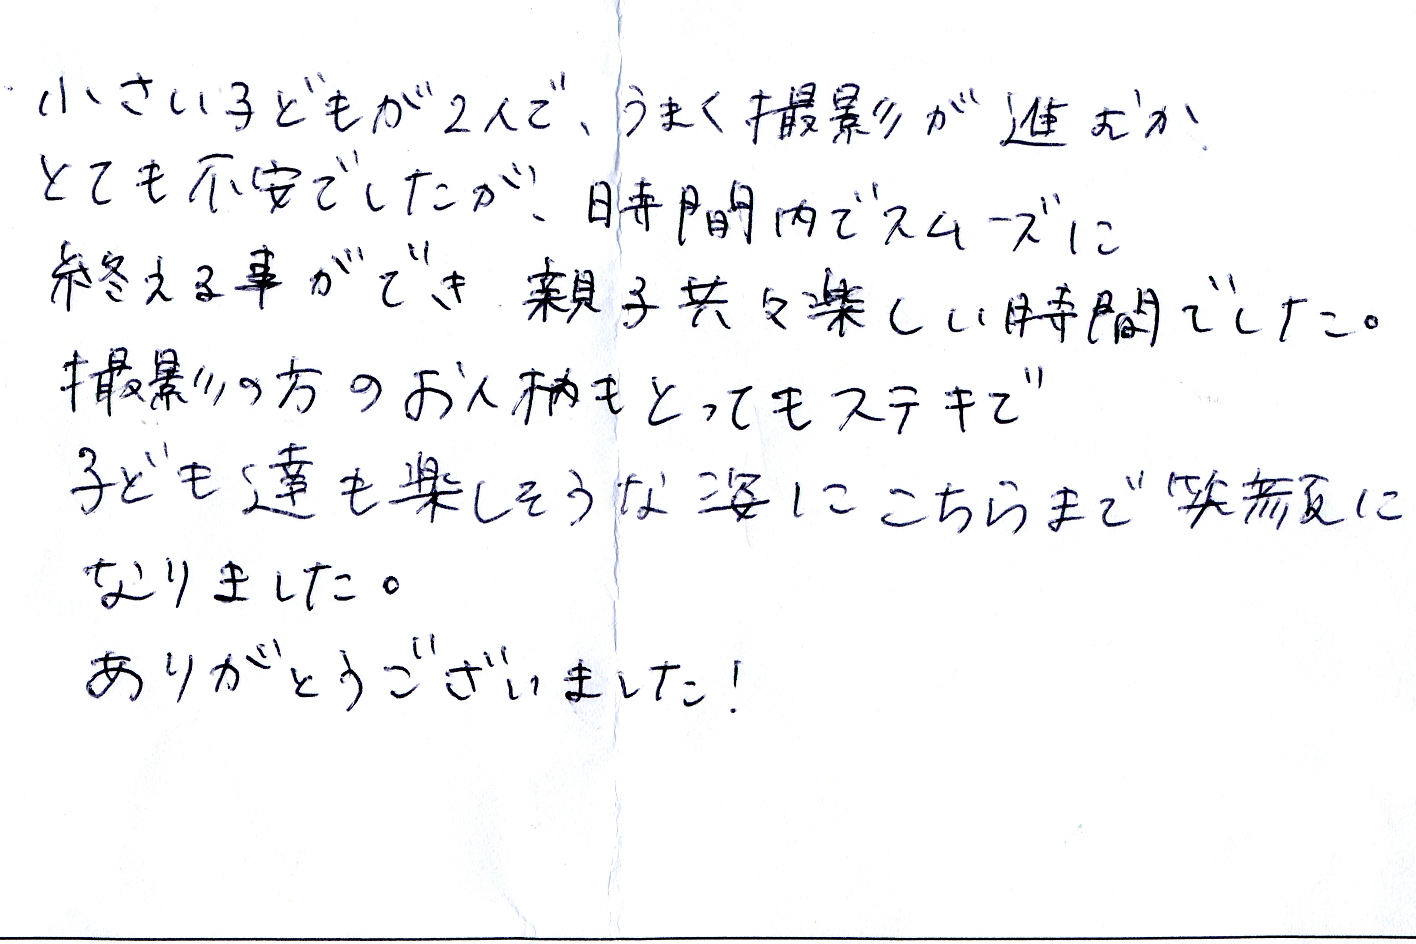 小さい子どもが2人で、うまく撮影が進むか
とても不安でしたが、時間内でスムーズに
終える事ができ 親子共々楽しい時間でした。
撮影の方のお人柄もとってもステキで
子ども達も楽しそうな姿にこちらまで笑顔に
なりました。
ありがとうございました!